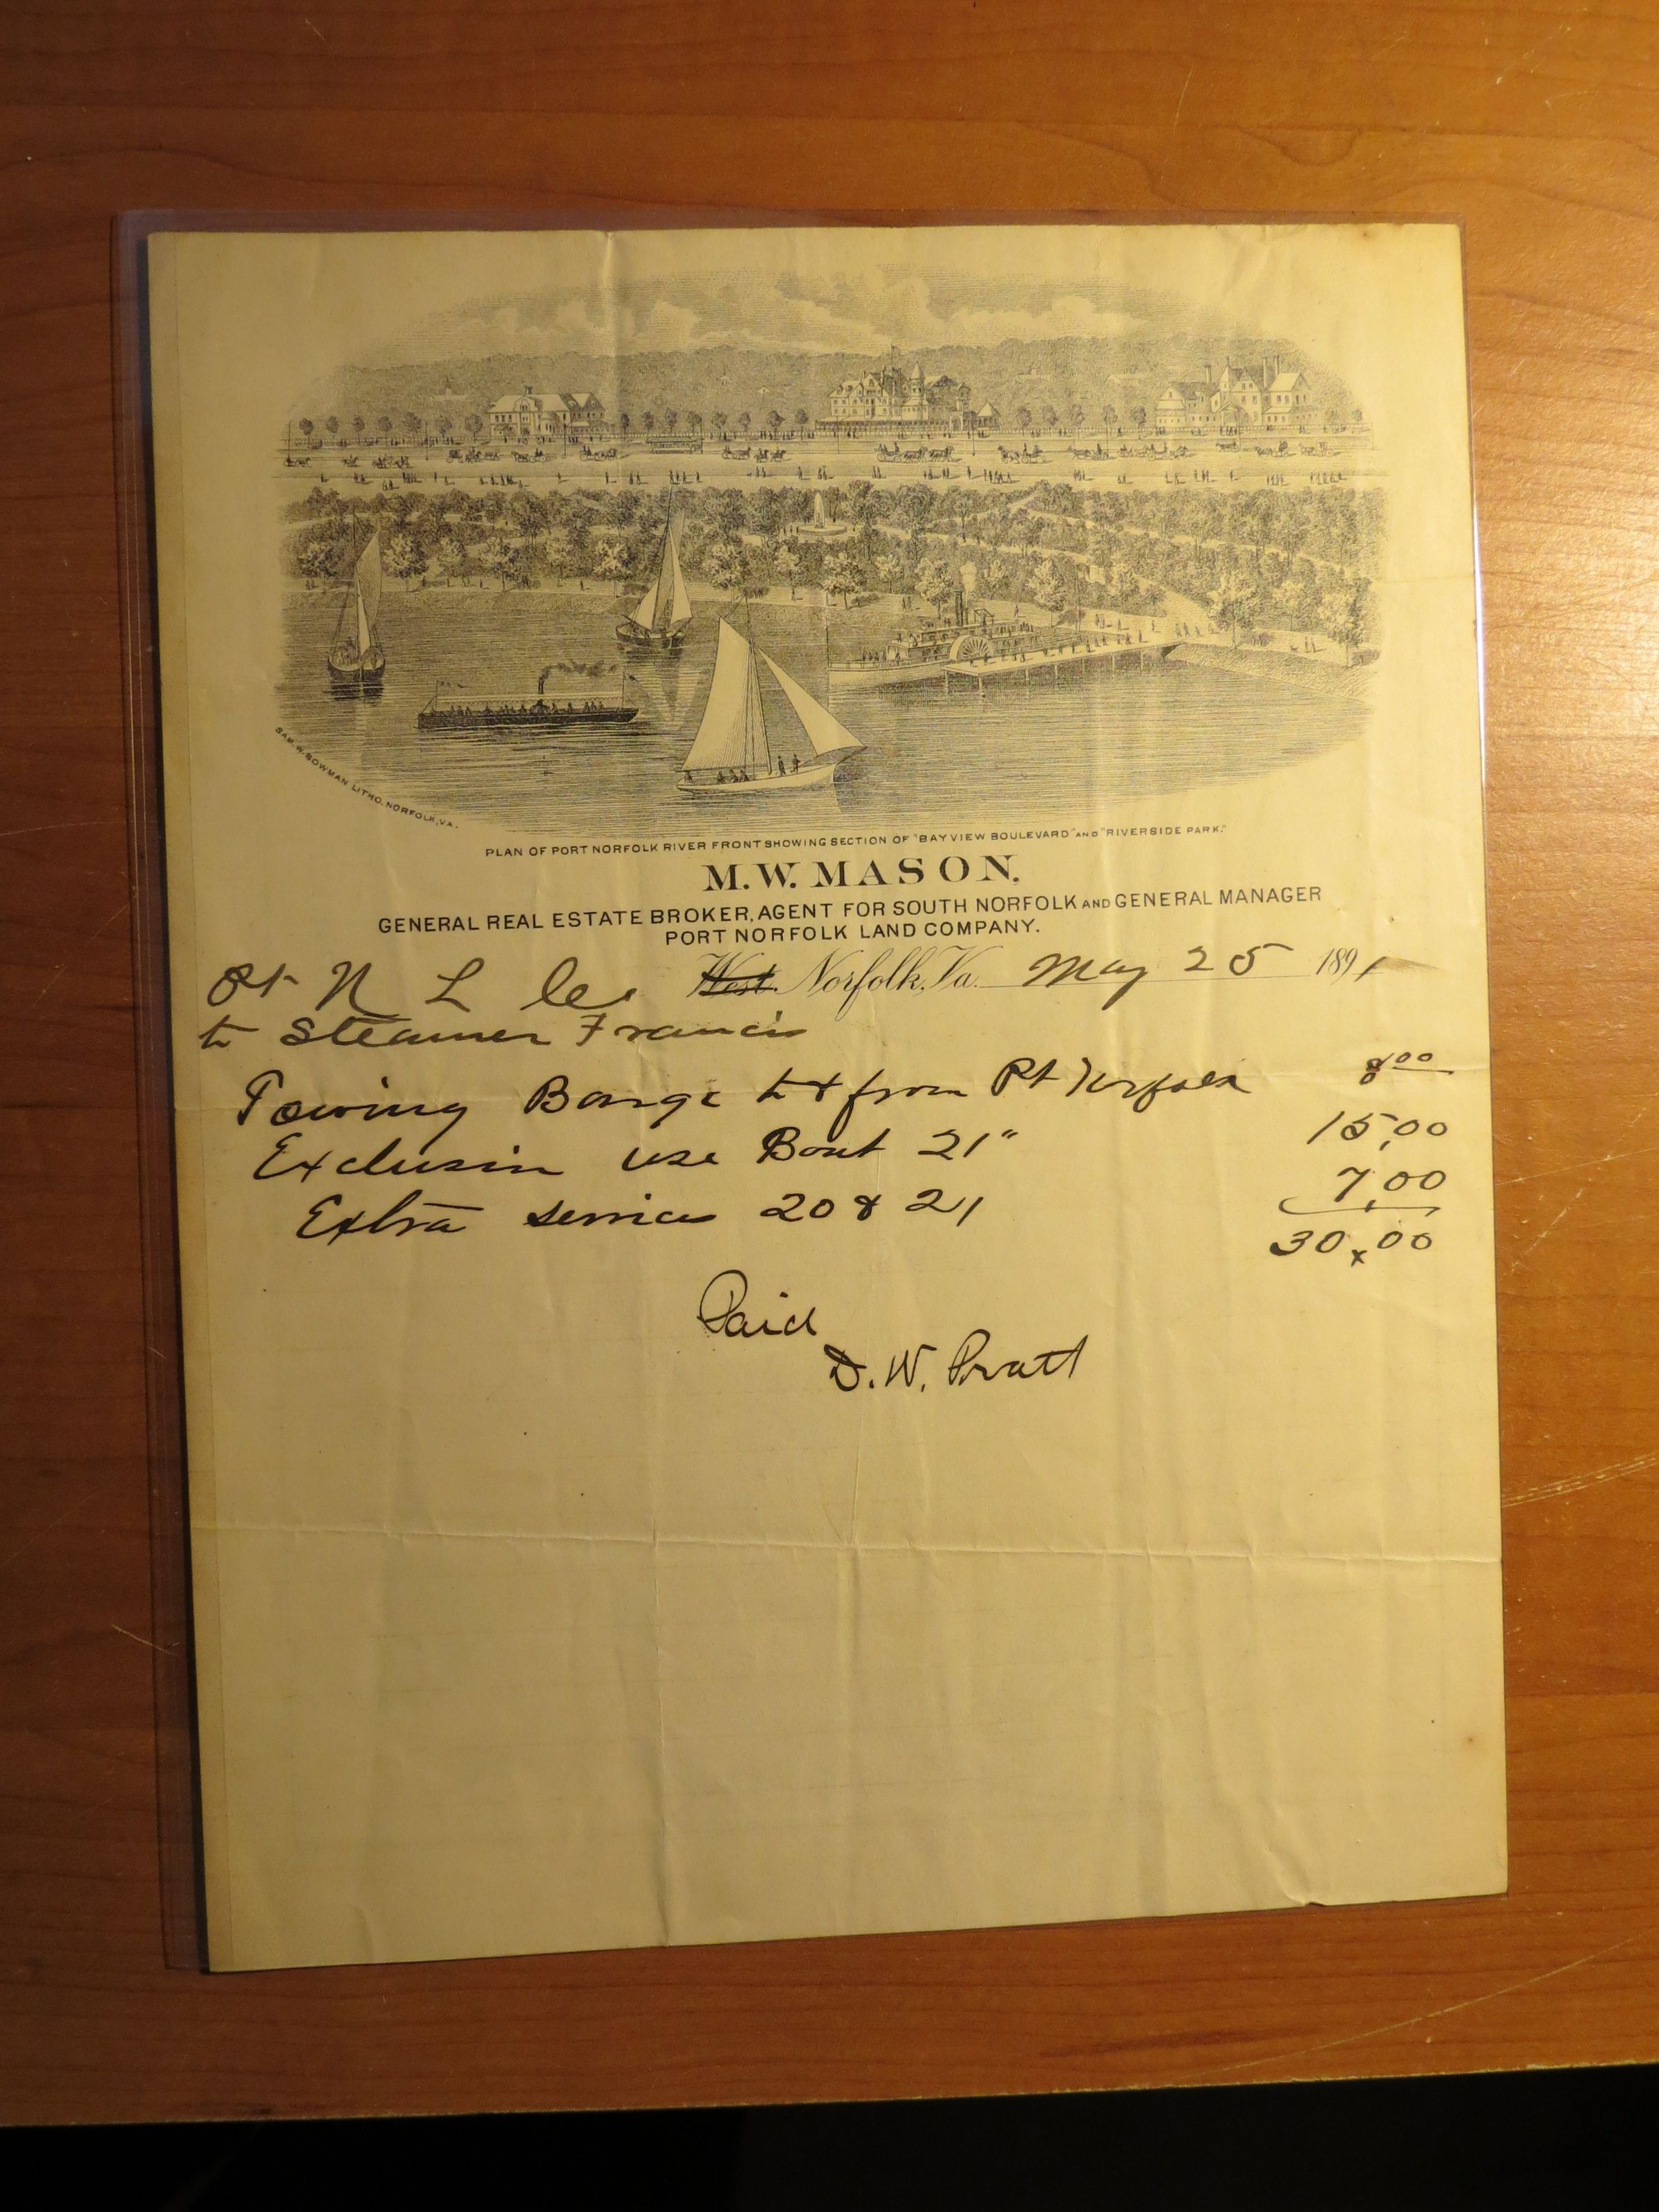 SAM. W. BOWMAN LITHO. NORFOLK, VA.
PLAN OF PORT NORFOLK RIVER FRONT SHOWING SECTION OF "BAYVIEW BOULEVARD" AND "RIVERSIDE PARK."
M. W. MASON.
GENERAL REAL ESTATE BROKER, AGENT FOR SOUTH NORFOLK AND GENERAL MANAGER
PORT NORFOLK LAND COMPANY.
West Norfolk, Va. May 25 1891
Pt N L Co
to Steamer Francis
Towing Barge to & from Pt Norfolk 8 00
Exclusive use Boat 21" 15,00
Extra services 20 & 21 7,00
30,00
Paid
D. W. Pratt